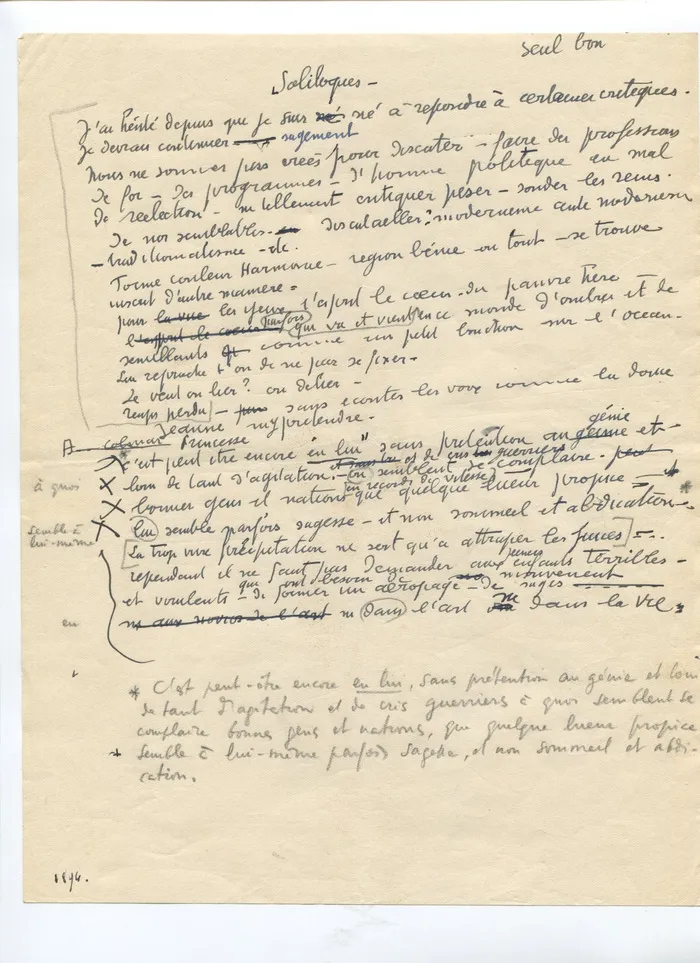 seul bon
Soliloques –
J'ai hésité depuis que je suis né à répondre à certaines critiques.
Je devrais continuer sagement
Nous ne sommes pas créés pour discuter – faire des professions
de foi – des programmes – d'homme politique en mal
de réélection – mutuellement critiquer peser – sonder les reins.
De nos semblables – modernisme
– traditionalisme – etc.
Forme couleur Harmonie – region bénie où tout – se trouve
d'autre manière =
pour la vue les yeux le coeur du pauvre hère –
l'esprit le coeur parfois qui va et vient ce monde d'ombres et de
semblants comme un petit bouchon sur l'océan.
Lui reproche t'on de ne pas se fixer –
Le veut on lier? ou délier –
temps perdu! – sans écouter les voix comme la bonne
Jeanne n'y prétendre.
A colmar Princesse génie
C'est peut être encore en lui" sans prétention au génie et –
loin de tant d'agitation – et de cris guerriers semblent se complaire – peut
en records de vitesse
à quoi
bonnes gens et nations que quelque lueur propice = *
semble à
lui-même
lui semble parfois sagesse – et non sommeil et abdication –
[La trop vive précipitation ne sert qu'à attraper les puces] = –
cependant il ne faut pas demander aux jeunes enfants terribles –
et virulents qui ont besoin de mouvement – de former un aéropage – de sages
en
ni aux novices de l'art ni dans l'art ni dans la vie =
* C'est peut-être encore en lui, sans prétention au génie et loin
de tant d'agitation et de cris guerriers à quoi semblent se
complaire bonnes gens et nations, que quelque lueur propice
* semble à lui-même parfois sagesse, et non sommeil et abdi-
cation.
1894.